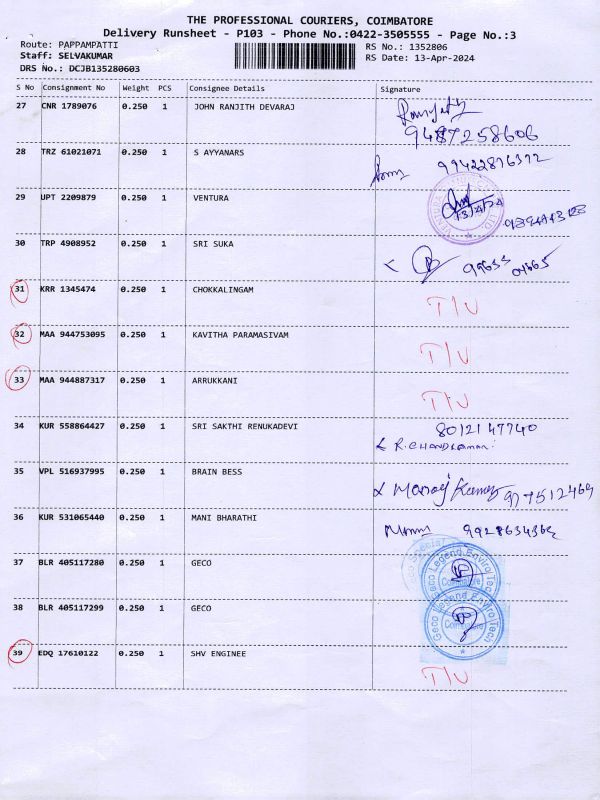 THE PROFESSIONAL COURIERS, COIMBATORE
Delivery Runsheet - P103 - Phone No.:0422-3505555 - Page No.:3
Route: PAPPAMPATTI
RS No.: 1352806
Staff: SELVAKUMAR
RS Date: 13-Apr-2024
DRS No.: DCJB135280603
S No Consignment No Weight PCS Consignee Details Signature
27 CNR 1789076 0.250 1 JOHN RANJITH DEVARAJ
9487258606
28 TRZ 61021071 0.250 1 S AYYANARS
99422876372
29 UPT 2209879 0.250 1 VENTURA
13/4/24
30 TRP 4908952 0.250 1 SRI SUKA
31 KRR 1345474 0.250 1 CHOKKALINGAM
T/U
32 MAA 944753095 0.250 1 KAVITHA PARAMASIVAM
T/U
33 MAA 944887317 0.250 1 ARRUKKANI
T/U
34 KUR 558864427 0.250 1 SRI SAKTHI RENUKADEVI
8012147740
35 VPL 516937995 0.250 1 BRAIN BESS
Manoj Kumar 977512469
36 KUR 531065440 0.250 1 MANI BHARATHI
9928634362
37 BLR 405117280 0.250 1 GECO
Geco Legend Enviro Tech
Coimbatore
38 BLR 405117299 0.250 1 GECO
Geco Legend Enviro Tech
Coimbatore
39 EDQ 17610122 0.250 1 SHV ENGINEE
T/U